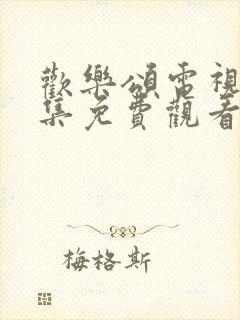 歡樂頌電視
集免費觀看
梅格斯